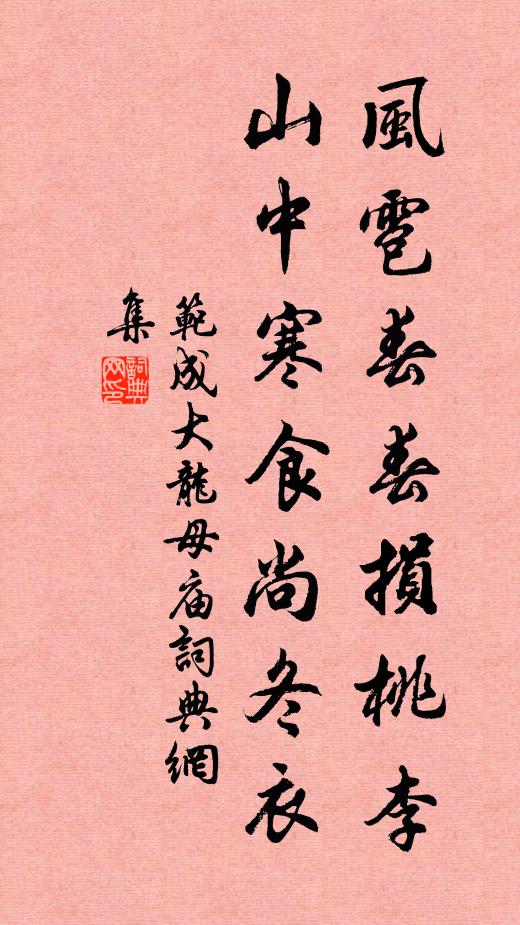 風雹春春損桃李
山中寒食尚冬衣
範成大龍母庙詞典網
集
詞典
网印